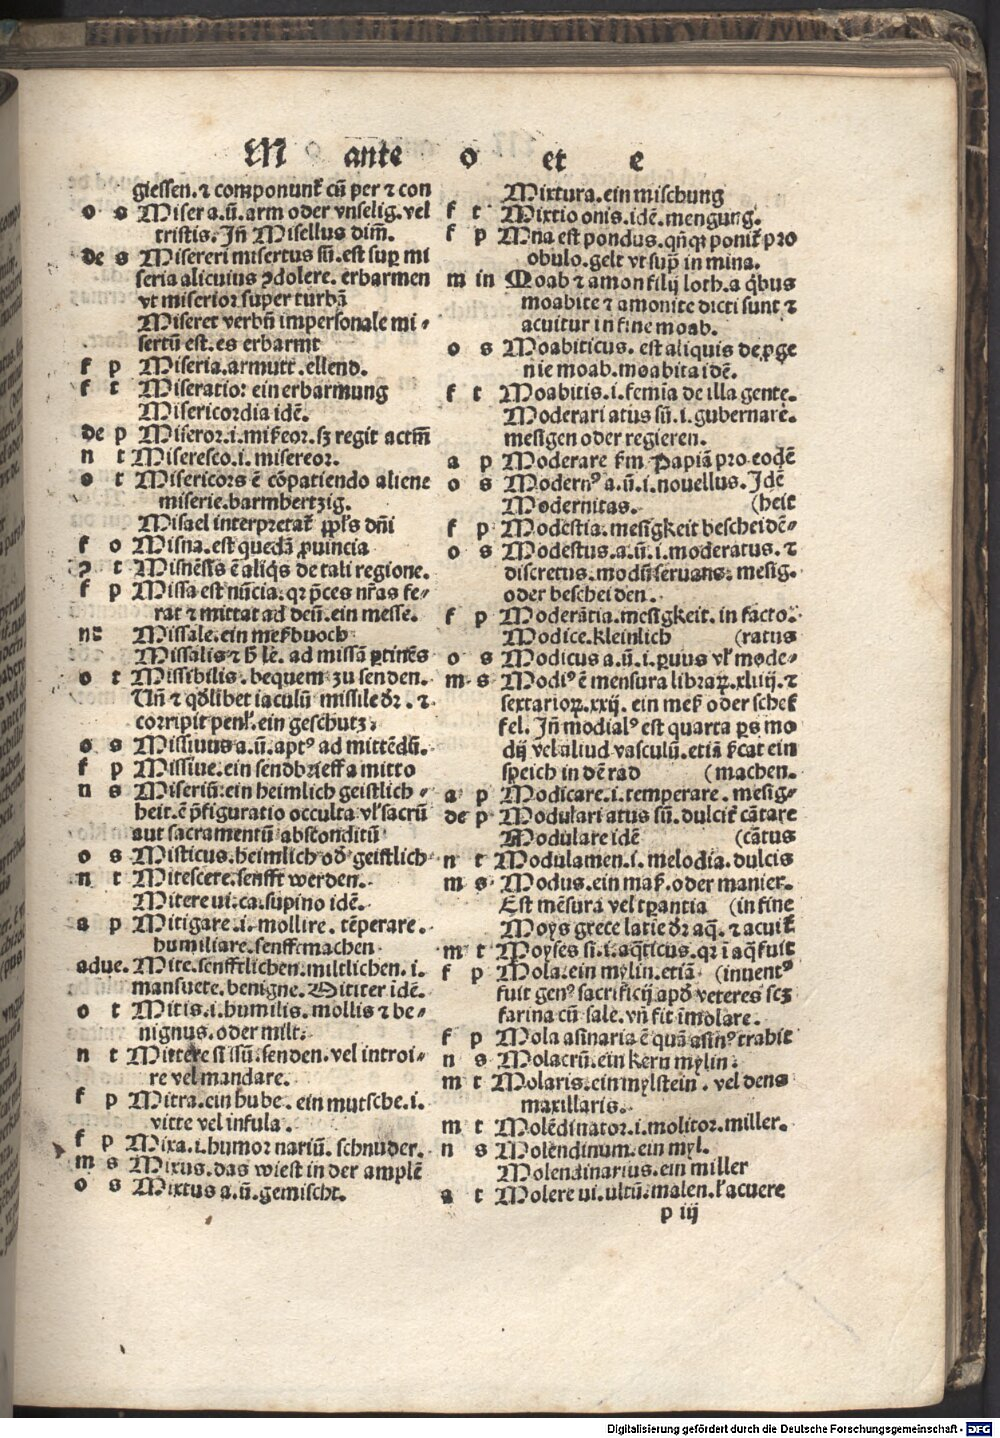 M ante o et e
giessen. ⁊ componunt̃ cũ per ⁊ con
o s Miser a. ũ. arm oder vnselig. vel
tristis. Jñ Misellus dim̃.
de s Misereri misertus sũ. est suꝑ mi
seria alicuius ꝯdolere. erbarmen
vt miserior super turbã
Miseret verbũ impersonale mi⸗
sertũ est. es erbarmt
f p Miseria. armutt. ellend.
f t Miseratio: ein erbarmung
Misericordia idẽ.
de p Miseror. i. misẽreor. sꝫ regit actm̃
n t Miseresco. i. misereor.
o t Misericors ẽ cõpatiendo aliene
miserie. barmhertzig.
Misael interpretat̃ ppl̃s dñi
f o Misna. est quedã ꝓuincia
ꝯ t Misnẽsis ẽ aliq̇s de tali regione.
f p Missa est nũcia. qꝛ p̃ces nr̃as fe⸗
rat ⁊ mittat ad deũ. ein messe.
nt Missale. ein meßbuoch
Missalis ⁊ h̃ le. ad missã ꝑtinẽs
o t Missibilis. bequem zu senden.
Uñ ⁊ qđlibet iaculũ missile dr̃. ⁊
corripit penl̃. ein geschutz.
o s Missiuus a. ũ. aptꝰ ad mittẽdũ.
f p Missiue. ein sendbrieff a mitto
n s Miseriũ: ein heimlich geistlich⸗
heit. ẽ p̃figuratio occulta vl̃ sacrũ
aut sacramentũ absconditũ
o s Misticus. heimlich od̃ geistlich
n t Mitescere. senfft werden.
Mitere ui. ca. supino idẽ.
a p Mitigare. i. mollire. tẽperare.
humiliare. senfft machen
adue. Mite. senfftlichen. miltlichen. i.
mansuete. benigne. Mititer idẽ.
o t Mitis. i. humilis. mollis ⁊ be⸗
nignus. oder milt.
n t Mittere si ssũ. senden. vel introi⸗
re vel mandare.
f p Mitra. ein hube. ein mutsche. i.
vitte vel infula.
f p Mixa. i. humor nariũ. schnuder.
m s Mixus. das wiest in der amplẽ
o s Mixtus a. ũ. gemischt.
Mixtura. ein mischung
f t Mixtio onis. idẽ. mengung.
f p Mna est pondus. qñqꝫ ponit̃ pro
obulo. gelt vt supͣ in mina.
m in Moab ⁊ amon filij loth. a q̇bus
moabite ⁊ amonite dicti sunt ⁊
acuitur in fine moab.
o s Moabiticus. est aliquis de ꝓge
nie moab. moabita idẽ.
f t Moabitis. i. femĩa de illa gente.
Moderari atus sũ. i. gubernare.
mesigen oder regieren.
a p Moderare sm̃ Papiã pro eodẽ
o s Modernꝰ a. ũ. i. nouellus. Jdẽ
Modernitas. (heit
f p Modestia. mesigkeit bescheidẽ⸗
o s Modestus. a. ũ. i. moderatus. ⁊
discretus. modũ seruans. mesig.
oder bescheiden.
f p Moderãtia. mesigkeit. in facto.
Modice. kleinlich (ratus
o s Modicus a. ũ. i. ꝑuus vl̃ mode⸗
m s Modiꝰ ẽ mensura libraꝝ. xliiij. ⁊
sextarioꝝ. xxij. ein meß oder schef
fel. Jñ modialꝰ est quarta ꝑs mo
dij vel aliud vasculũ. etiã s̃cat ein
speich in dẽ rad (machen.
a p Modicare. i. temperare. mesig⸗
de p Modulari atus sũ. dulcit̃ cãtare
Modulare idẽ (cãtus
n t Modulamen. i. melodia. dulcis
m s Modus. ein maß. oder manier.
Est mẽsura vel tꝑantia (in fine
Moys grece latie dr̃ aq̃. ⁊ acuit̃
m t Moyses si. i. aq̃ticus. qꝛ ĩ aq̃ fuit
f p Mola. ein mylin. etiã (inuentꝰ
fuit genꝰ sacrificij apđ veteres scꝫ
farina cũ sale. vñ fit ĩmolare.
f p Mola asinaria ẽ quã asinꝰ trahit
n s Molacrũ. ein kern mylin.
m t Molaris. ein mylstein. vel dens
maxillaris.
m t Molẽdinator. i. molitor. miller.
n s Molendinum. ein myl.
Molendinarius. ein miller
a t Molere ui. ultũ. malen. l̃ acuere
p iij
Digitalisierung gefördert durch die Deutsche Forschungsgemeinschaft - DFG